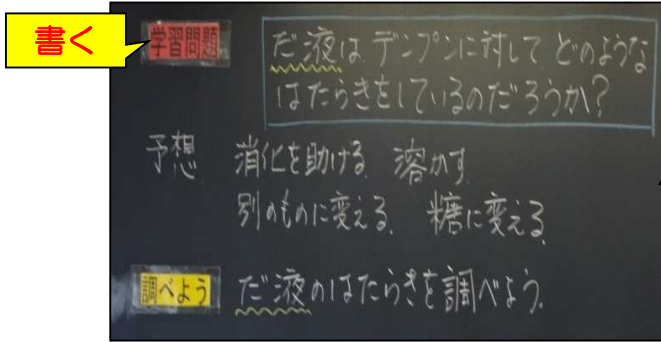 書く
学習問題
だ液は デンプンに対して どのような
はたらきをしているのだろうか?
予想 消化を助ける 溶かす
別のものに変える. 糖に変える.
調べよう だ液のはたらきを調べよう.